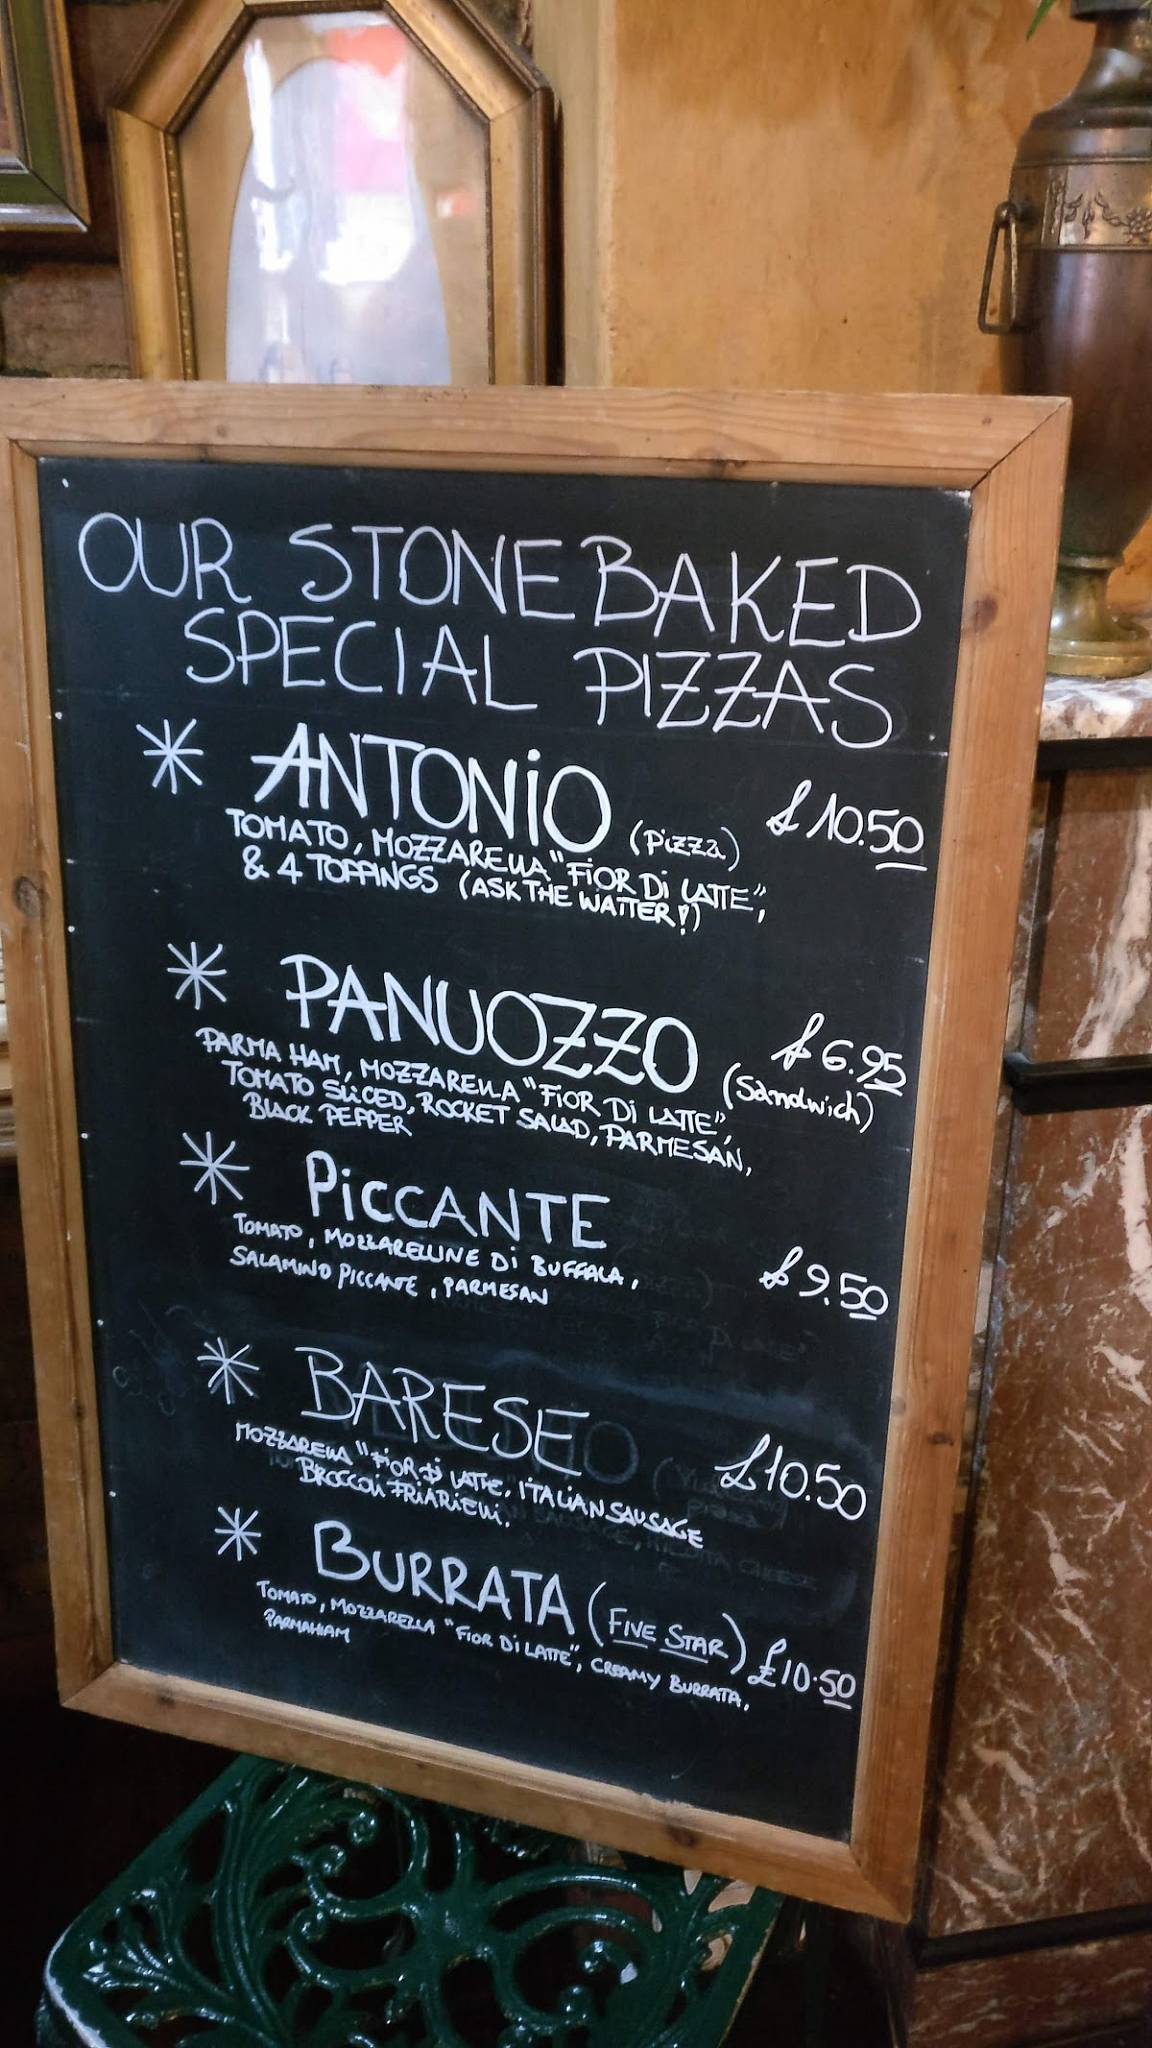 OUR STONEBAKED
SPECIAL PIZZAS
* ANTONIO (Pizza) £10.50
TOMATO, MOZZARELLA "FIOR DI LATTE",
& 4 TOPPINGS (ASK THE WAITER!)
* PANUOZZO £6.95
(Sandwich)
PARMA HAM, MOZZARELLA "FIOR DI LATTE",
TOMATO SLICED, ROCKET SALAD, PARMESAN,
BLACK PEPPER
* PICCANTE
TOMATO, MOZZARELLINE DI BUFFALA,
SALAMINO PICCANTE, PARMESAN
£9.50
* BARESE £10.50
MOZZARELLA "FIOR DI LATTE, ITALIAN SAUSAGE
BROCCOLI FRIARIELLI.
* BURRATA (FIVE STAR) £10.50
TOMATO, MOZZARELLA "FIOR DI LATTE", CREAMY BURRATA,
PARMAHAM